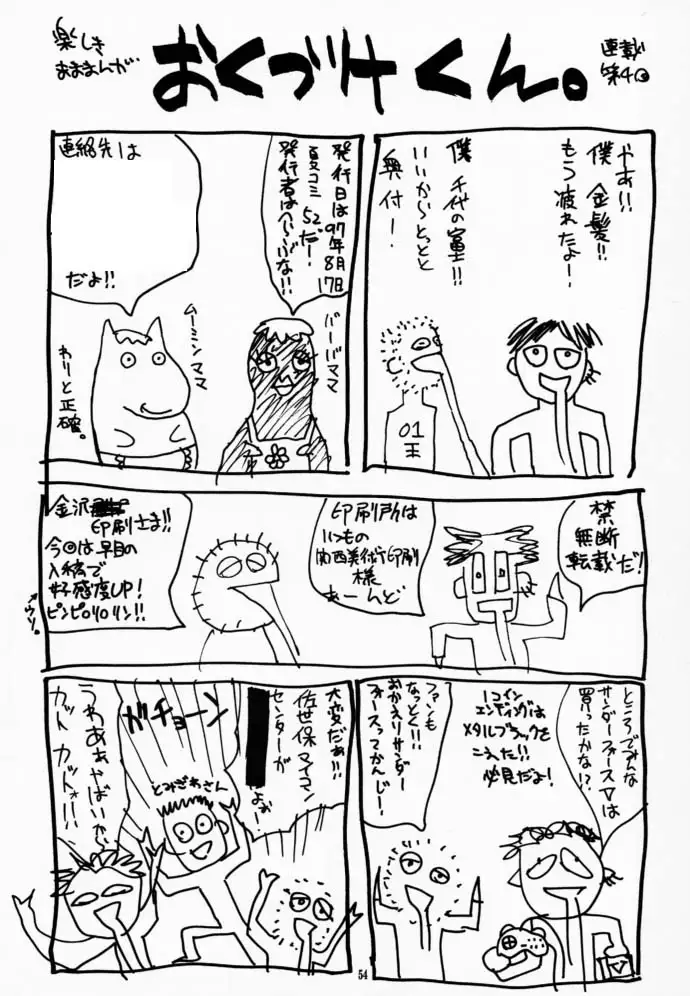 楽しき
おままんが
おくづけくん。
連載
第4回
やあ!!
僕 金髪!!
もう疲れたよー!
僕 千代の富士!!
いいからとっとと
奥付ー!
01
王
発行日は97年8月17日
夏コミ 52だー!
発行者はへらぶな!!
バーバママ
連絡先は
だよ!!
ムーミンママ
わりと正確。
禁
無断
転載だ!
印刷所は
いつもの
関西美術印刷
様
あーんど
金沢
印刷さま!!
今回は早目の
入稿で
好感度UP!
ピンピロリロリン!!
↑ウソ。
ところでみんな
サンダーフォースVは
買ったかな!?
1コイン
エンディングは
メタルブラックを
こえた!!
必見だよ!
ファンも
なっとく!!
おかえりサンダー
フォースってかんじー!
大変だぁ!!
佐世保マイコン
センターが
よお
ガチョーン
とみざわさん
うわあぁやばいから
カット カットォ!!
54